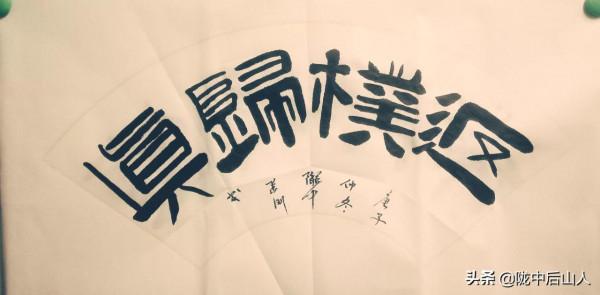 返樸歸眞
庚子
仲冬
隴中
书
头条 @陇中后山人